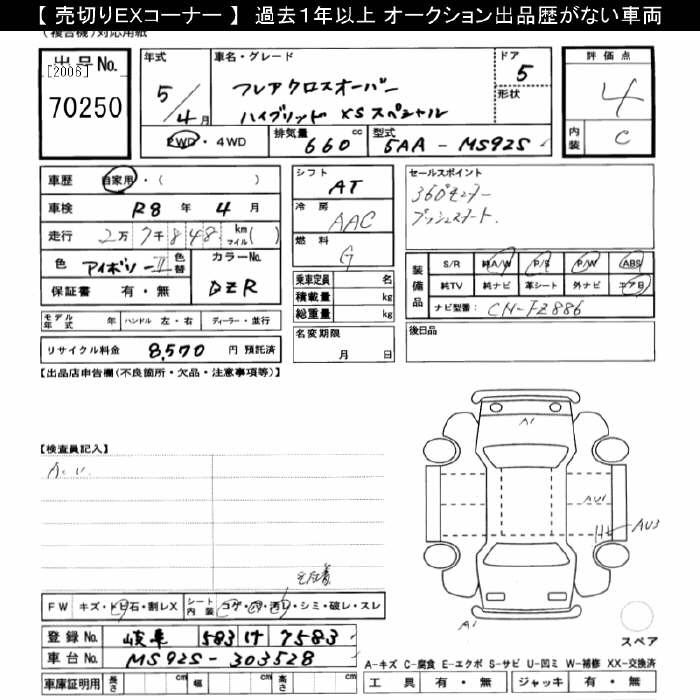 【 売切りEXコーナー 】 過去１年以上 オークション出品歴がない車両
(複合機)対応用紙
出品No.
[2006]
70250
年式
5/4月
車名・グレード
フレアクロスオーバー
ハイブリッド XSスペシャル
ドア
5
形状
2WD・4WD
排気量 660 cc
型式 5AA - MS92S
評価点
4
内装 C
車歴 自家用・( )
車検 R8 年 4 月
走行 2万7千848 km マイル( )
色 アイボリーII 色替
カラーNo. DZR
保証書 有・無
モデル年式 年 ハンドル 左・右 ディーラー・並行
リサイクル料金 8,570 円 預託済
シフト AT
冷房 AAC
燃料 G
乗車定員 名
積載量 kg
総重量 kg
名変期限
月 日
セールスポイント
360°モニター
プッシュスタート.
装備品
S/R 純A/W P/S P/W ABS
純TV 純ナビ 革シート 外ナビ エアB
ナビ型番: CN-FZ886
後日品
【出品店申告欄(不良箇所・欠品・注意事項等)】
【検査員記入】
A.U.
FW キズ・トビ石・割レX
シート内装 コゲ・穴・汚レ・シミ・破レ・スレ
登録No. 岐阜 583 け 7583
車台No. MS92S-303528
車庫証明用 長さ cm 幅 cm 高さ cm
A1
AU1
AU3
A1
スペア
A-キズ C-腐食 E-エクボ S-サビ U-凹ミ W-補修 XX-交換済
工具 有・無 ジャッキ 有・無